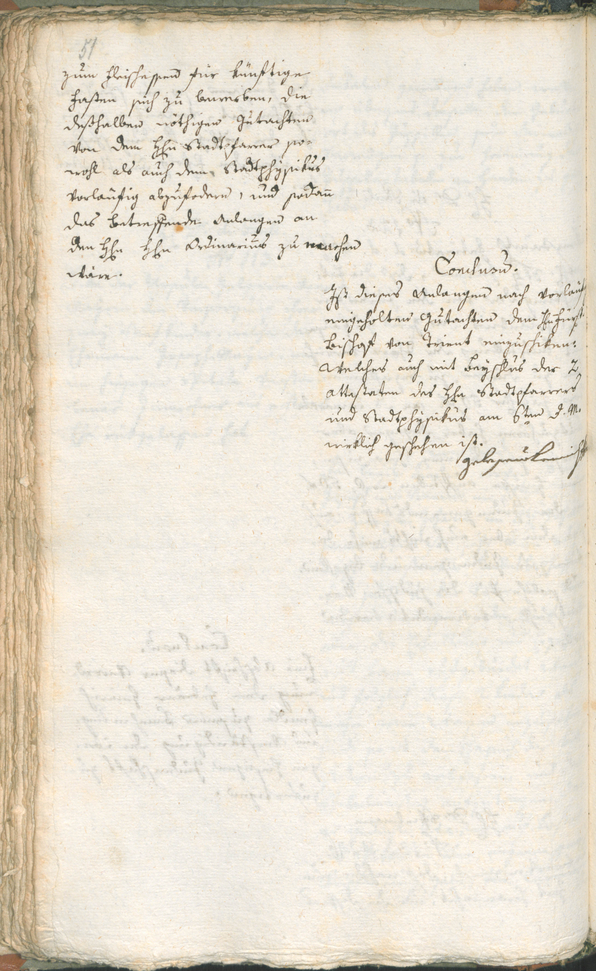 51
zum Fleischessen für künftige
Fasten sich zu bewerben, die
deßhalben nöthigen Gutachten
von dem Hhn Stadtpfarrer so¬
wohl als auch dem Stadtphysikus
vorläufig abzufodern, und sodann
das betreffende Anlangen an
den Hhn Hhn Ordinarius zu machen
wäre.
Conclusum.
Ist dieses Anlangen nach vorläuf
eingeholten Gutachten dem
Bischof von Trient einzuschiken:
Welches auch mit Beyschluß der 2
Attestaten des Hhn Stadtpfarrers
und Stadtphysikus am 6ten d. M.
wirklich geschehen ist.